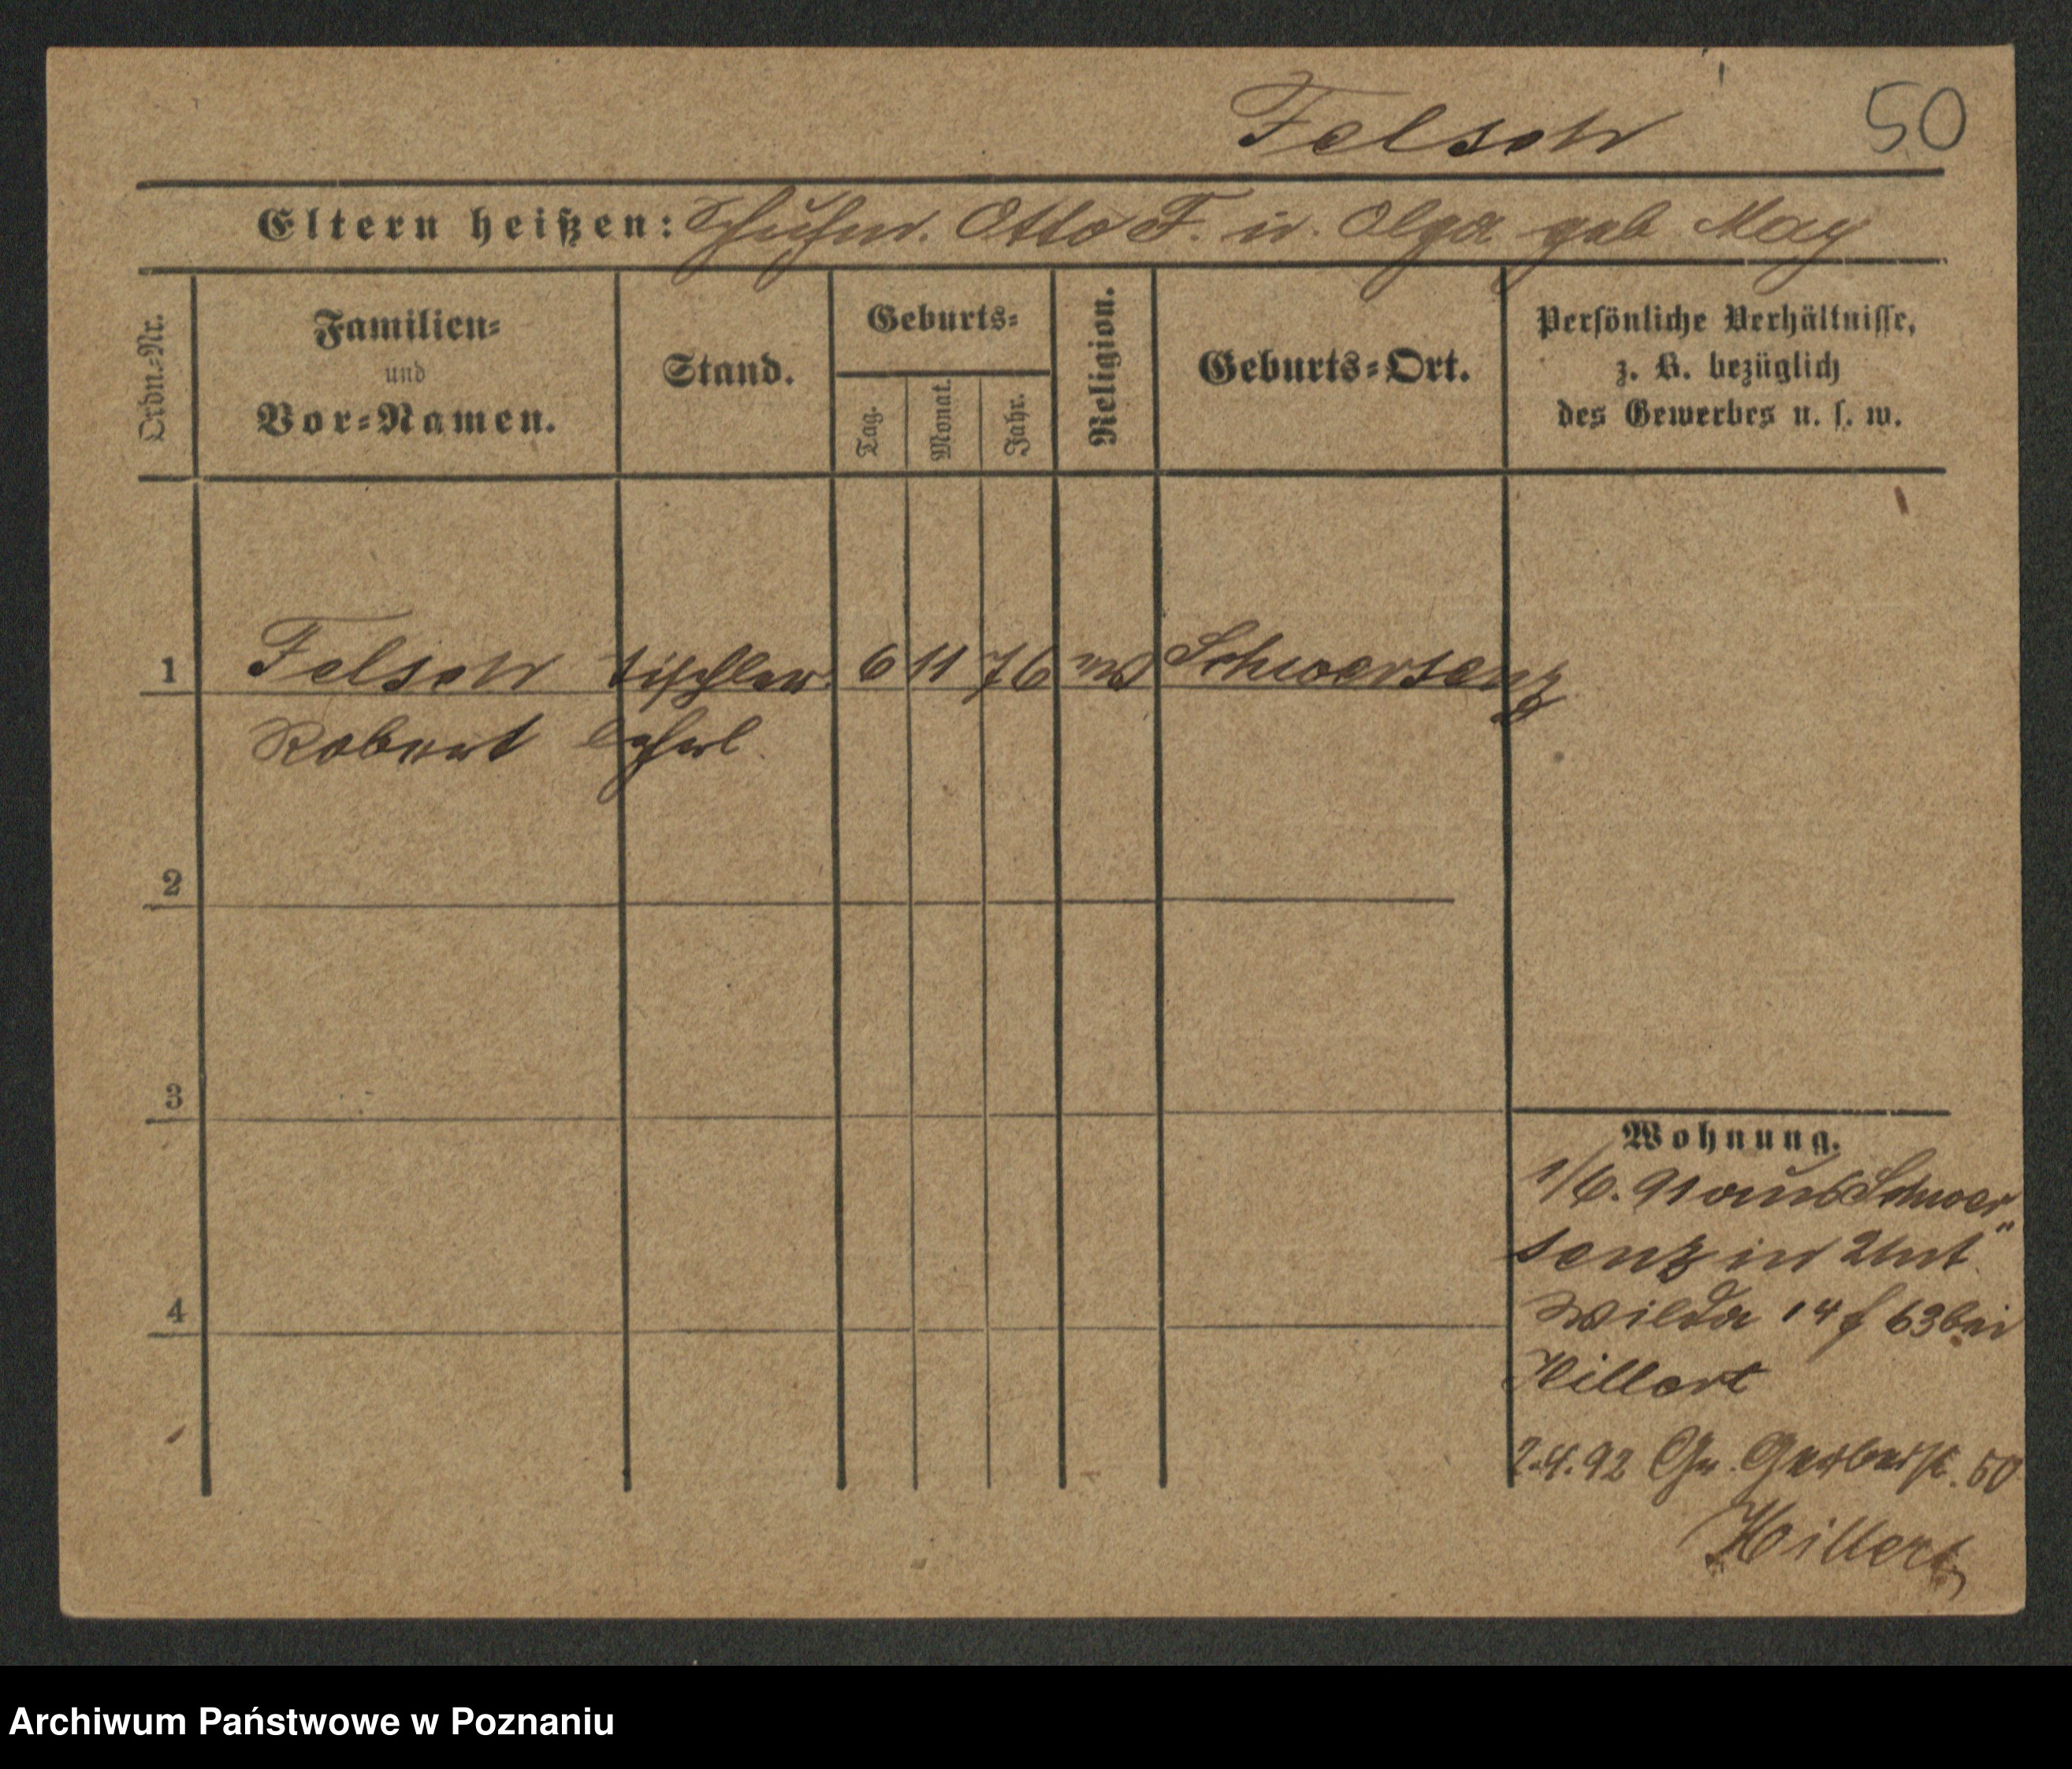 Felsch 50
Eltern heißen: Schuhm. Otto F. u. Olga geb May
Ordn.=Nr.
Familien=
und
Vor=Namen.
Stand.
Geburts=
Tag.
Monat.
Jahr.
Religion.
Geburts=Ort.
Persönliche Verhältnisse,
z. B. bezüglich
des Gewerbes u. s. w.
1 Felsch Tischler 6 11 76 Schwersenz
Robert
2
3
4
Wohnung.
1/6. 91 aus Schwer
senz in Unt
Wilda 14 f 63 bei
Hillert
2.4.92 Gr. Gerberst. 50
Hillert
Archiwum Państwowe w Poznaniu